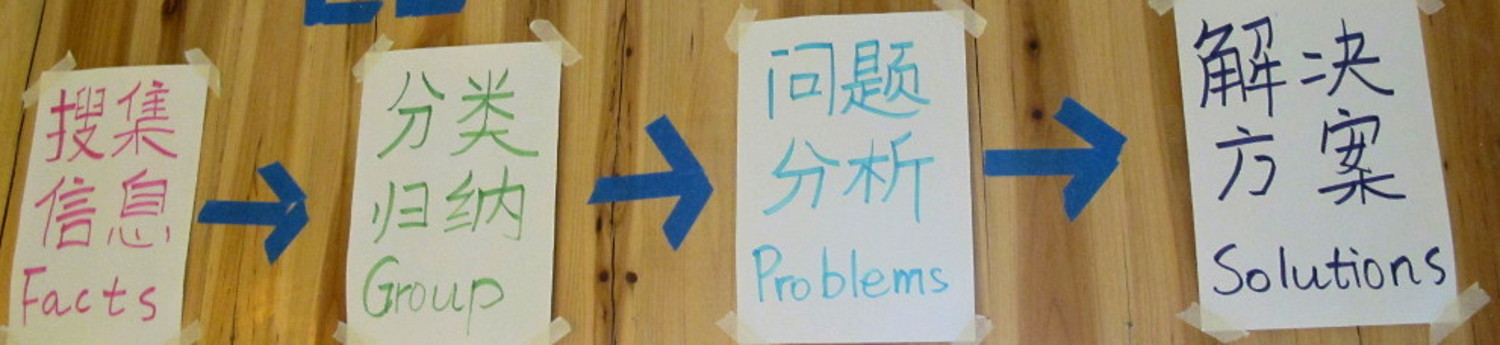 搜集
信息
Facts
分类
归纳
Group
问题
分析
Problems
解决
方案
Solutions